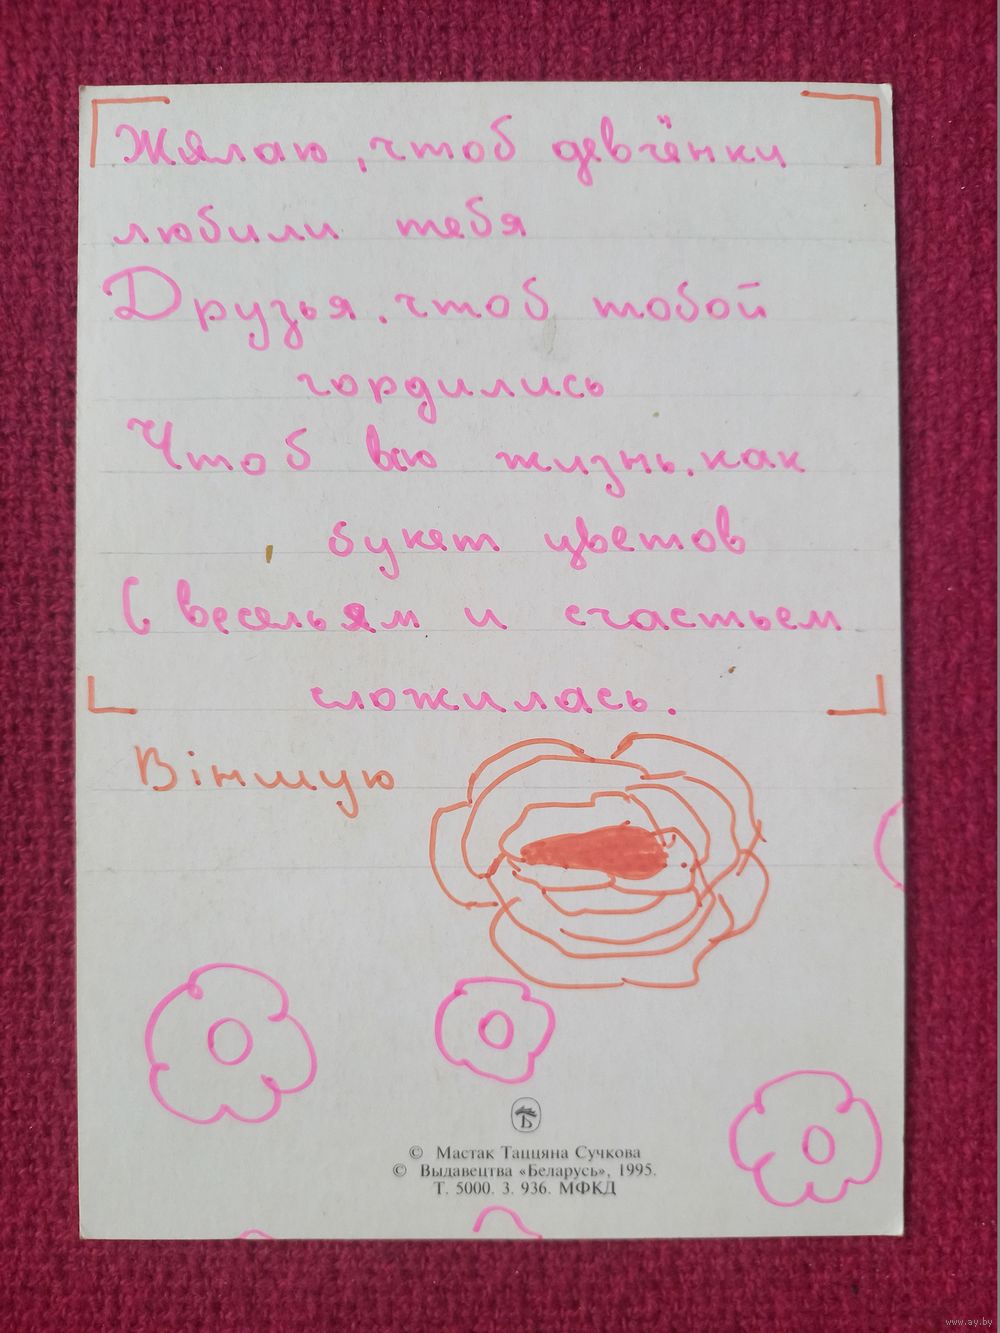 Жялаю, чтоб девчёнки
любили тебя
Друзья, чтоб тобой
гордились
Чтоб вю жизнь, как
букет цветов
С весельям и счастьем
сложилась.
Віншую
Б
© Мастак Таццяна Сучкова
© Выдавецтва «Беларусь», 1995.
Т. 5000. З. 936. МФКД
www.ay.by